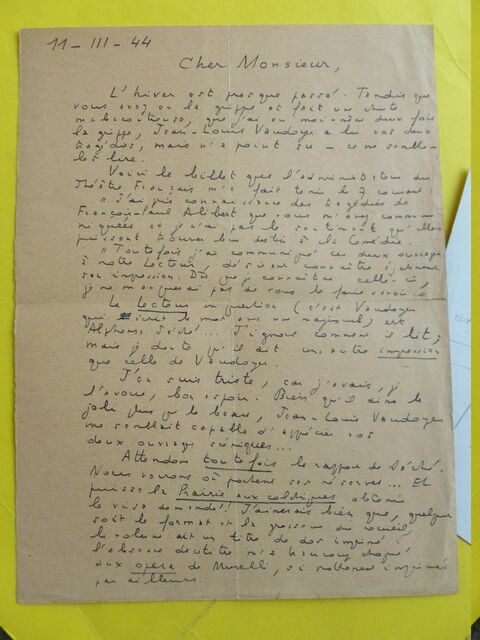 11 - III - 44
Cher Monsieur,
L'hiver est presque passé. Tandis que
vous avez eu la grippe et fait une chute
malencontreuse, que j'ai eu moi-même deux fois
la grippe, Jean-Louis Vaudoyer a lu vos deux
tragédies, mais n'a point su — ce me semble-
les lire.
Voici le billet que l'administrateur du
Théâtre Français m'a fait tenir le 7 courant :
" J'ai pris connaissance des tragédies de
François-Paul Alibert que vous m'avez commu-
niquées et je n'ai pas le sentiment qu'elles
puissent trouver leur destin à la Comédie.
" Toutefois j'ai communiqué ces deux ouvrages
à notre Lecteur, désirant connaître également
son impression. Dès que je connaîtrai celle-ci,
je ne manquerai pas de vous le faire savoir. "
Le Lecteur en question (c'est Vaudoyer
qui écrit le mot avec un majuscule) est
Alphonse Séché... J'ignore comment il lit ;
mais je doute qu'il ait une autre impression
que celle de Vaudoyer.
J'en suis triste, car j'avais, je
l'avoue, bon espoir. Bien qu'il aime le
joli plus que le beau, Jean-Louis Vaudoyer
me semblait capable d'apprécier vos
deux ouvrages scéniques...
Attendons toutefois le rapport de Séché.
Nous verrons où portent ses réserves... Et
puisse la Prairie aux colchiques obtenir
le visa demandé ! J'aimerais bien que, quelque
soit le format et la grosseur du recueil,
le volume ait un titre de dos imprimé :
l'absence de titre m'a toujours choqué
aux opera de Murelli, si nettement imprimés
par ailleurs.